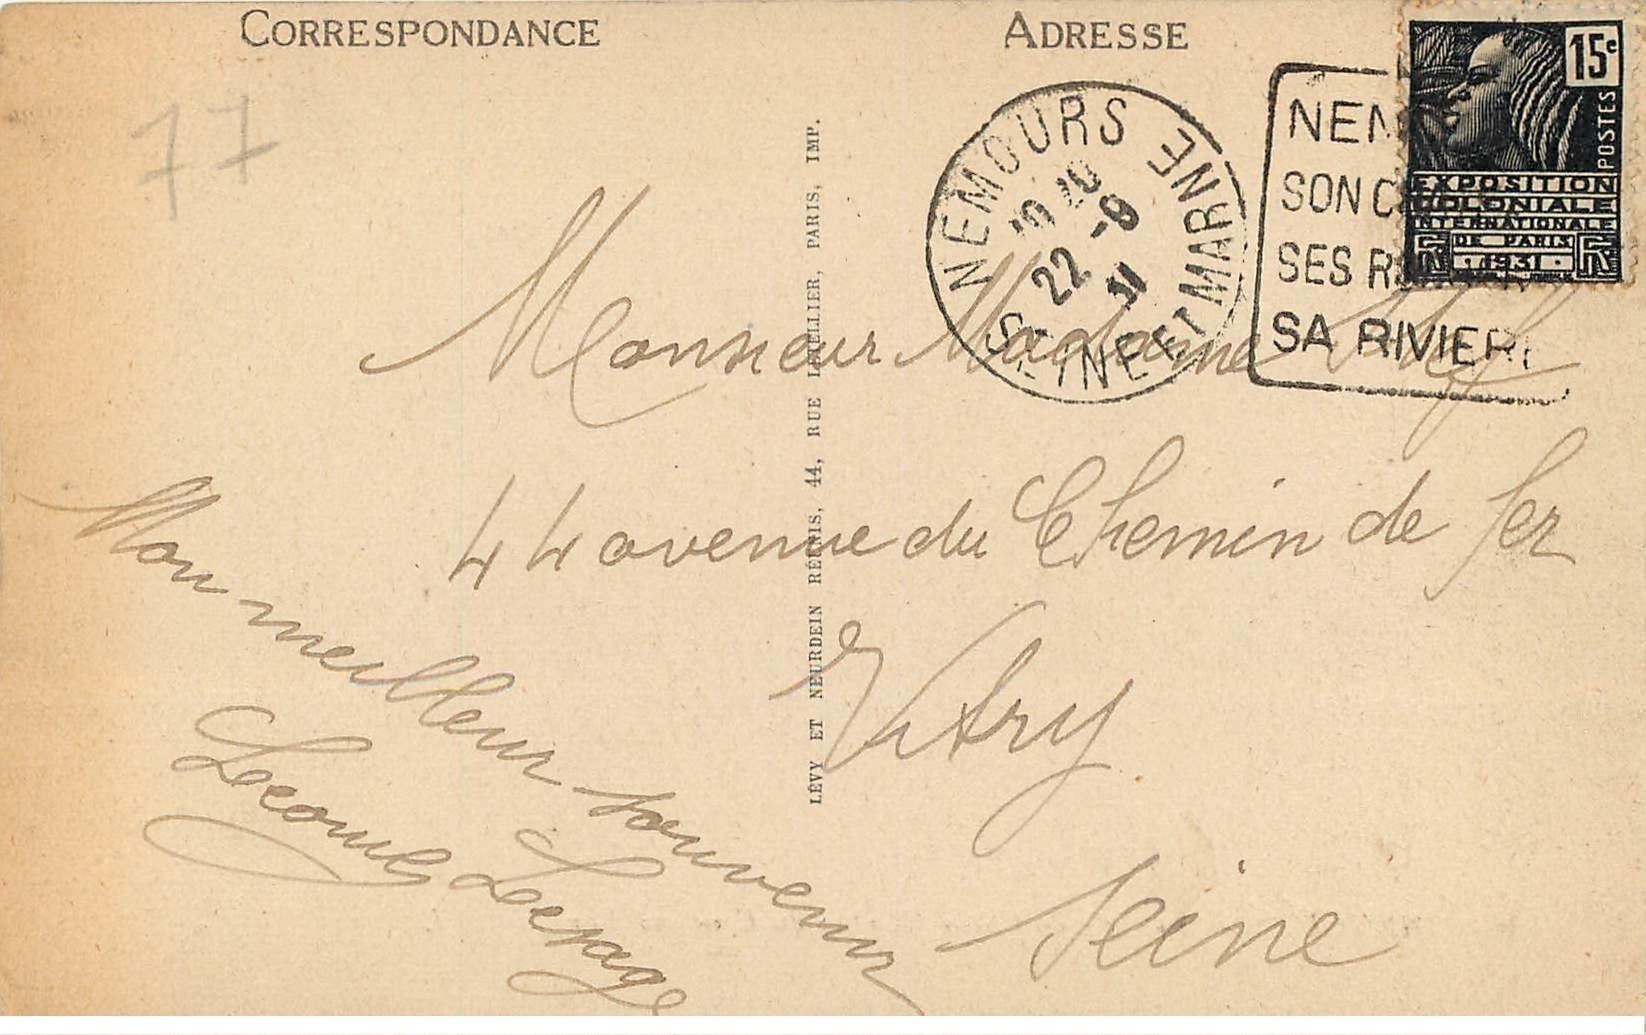 CORRESPONDANCE
ADRESSE
77
15c
POSTES
EXPOSITION
COLONIALE
INTERNATIONALE
DE PARIS
1931
RF
NEMOURS
SEINE ET MARNE
22 -9
31
NEM
SON C
SES R
SA RIVIER
Monsieur Madame
44 avenue du Chemin de fer
Vitry
Seine
Mon meilleur souvenir
Lepage
LÉVY ET NEURDEIN RÉUNIS, 44, RUE LETELLIER, PARIS, IMP.